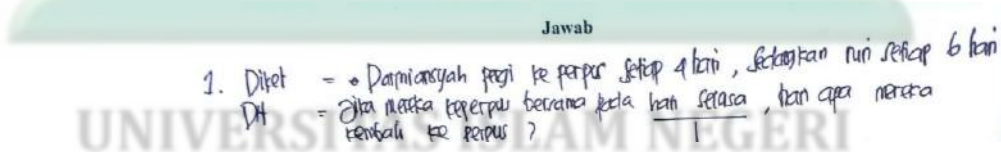 Jawab
1. Diket = • Darmiansyah pergi ke perpus setiap 4 hari, sedangkan nuri setiap 6 hari
Dit = Jika mereka keperpus bersama pada hari selasa, hari apa mereka
kembali ke perpus ?
1
UNIVERSITAS ISLAM NEGERI